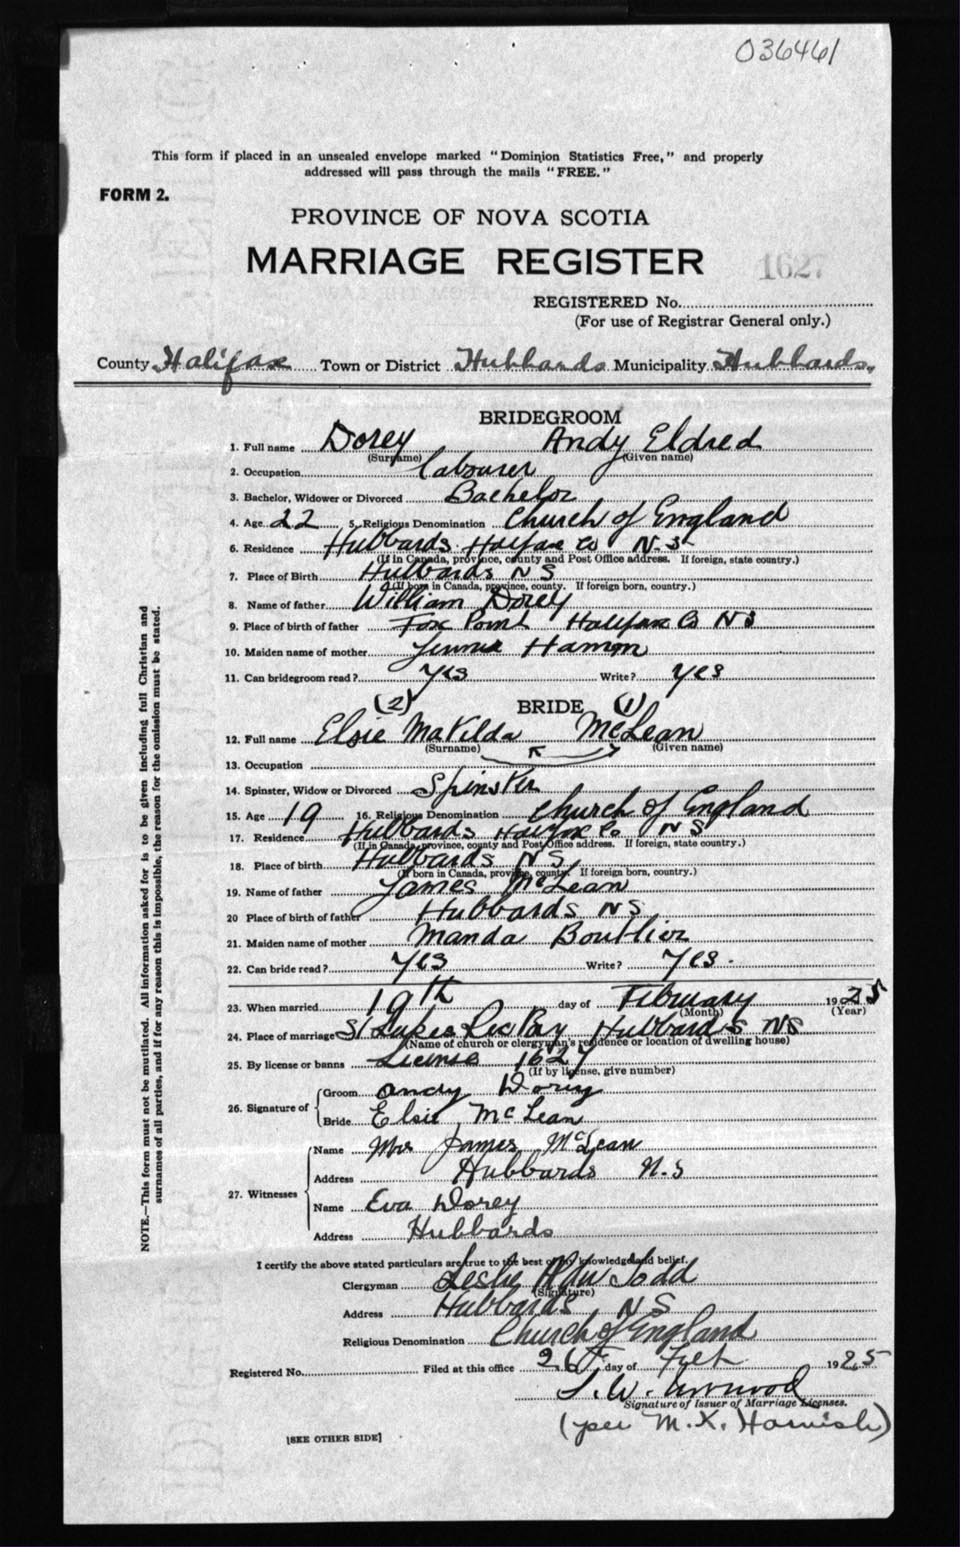 036461
This form if placed in an unsealed envelope marked "Dominion Statistics Free," and properly
addressed will pass through the mails "FREE."
FORM 2.
PROVINCE OF NOVA SCOTIA
MARRIAGE REGISTER
1627
REGISTERED No.
(For use of Registrar General only.)
County Halifax Town or District Hubbards Municipality Hubbards.
BRIDEGROOM
1. Full name Dorey Andy Eldred
(Surname) (Given name)
2. Occupation labourer
3. Bachelor, Widower or Divorced Bachelor
4. Age 22 5. Religious Denomination Church of England
6. Residence Hubbards Halifax Co N.S
(If in Canada, province, county and Post Office address. If foreign, state country.)
7. Place of Birth Hubbards NS
(If born in Canada, province, county. If foreign born, country.)
8. Name of father William Dorey
9. Place of birth of father Fox Point Halifax Co NS
10. Maiden name of mother
11. Can bridegroom read? Yes Write? Yes
(2) BRIDE (1)
12. Full name Elsie Matilda McLean
(Surname) (Given name)
13. Occupation
14. Spinster, Widow or Divorced Spinster
15. Age 19 16. Religious Denomination Church of England
17. Residence Hubbards Halifax Co. NS
(If in Canada, province, county and Post Office address. If foreign, state country.)
18. Place of birth Hubbards NS
(If born in Canada, province, county. If foreign born, country.)
19. Name of father James McLean
20 Place of birth of father Hubbards NS
21. Maiden name of mother Manda Boutlier
22. Can bride read? Yes Write? Yes.
23. When married 19th day of February 1925
(Month) (Year)
24. Place of marriage St Lukes Hubbards NS
(Name of church or clergyman's residence or location of dwelling house)
25. By license or banns License 1627
(If by license, give number)
26. Signature of
Groom Andy Dorey
Bride Elsie McLean
27. Witnesses
Name Mrs James McLean
Address Hubbards N.S
Name Eva Dorey
Address Hubbards
I certify the above stated particulars are true to the best of my knowledge and belief.
Clergyman Leslie Todd
(Signature)
Address Hubbards NS
Religious Denomination Church of England
Registered No. Filed at this office 26th day of Feb 1925
Signature of Issuer of Marriage Licenses.
(per M. K. Harnish)
[SEE OTHER SIDE]
NOTE.—This form must not be mutilated. All information asked for is to be given including full Christian and
surnames of all parties, and if for any reason this is impossible, the reason for the omission must be stated.